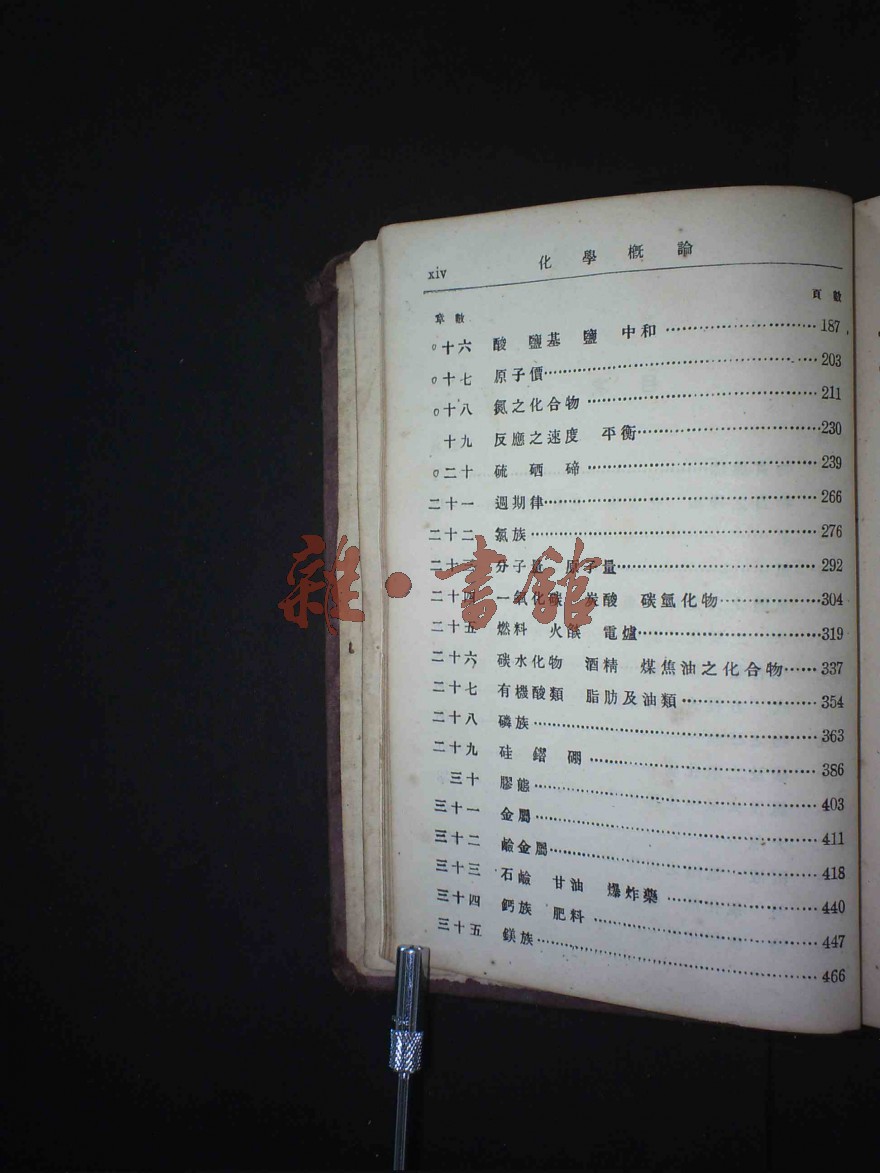 xiv 化學概論
章數 頁數
十六 酸 鹽基 鹽 中和……187
十七 原子價……203
十八 氮之化合物……211
十九 反應之速度 平衡……230
二十 硫 硒 碲……239
二十一 週期律……266
二十二 氯族……276
二十三 分子量 原子量……292
二十四 一氧化碳 炭酸 碳氫化物……304
二十五 燃料 火燄 電爐……319
二十六 碳水化物 酒精 煤焦油之化合物……337
二十七 有機酸類 脂肪及油類……354
二十八 磷族……363
二十九 硅 硼……386
三十 膠態……403
三十一 金屬……411
三十二 鹼金屬……418
三十三 石鹼 甘油 爆炸藥……440
三十四 鈣族 肥料……447
三十五 鎂族……466
雜·書館